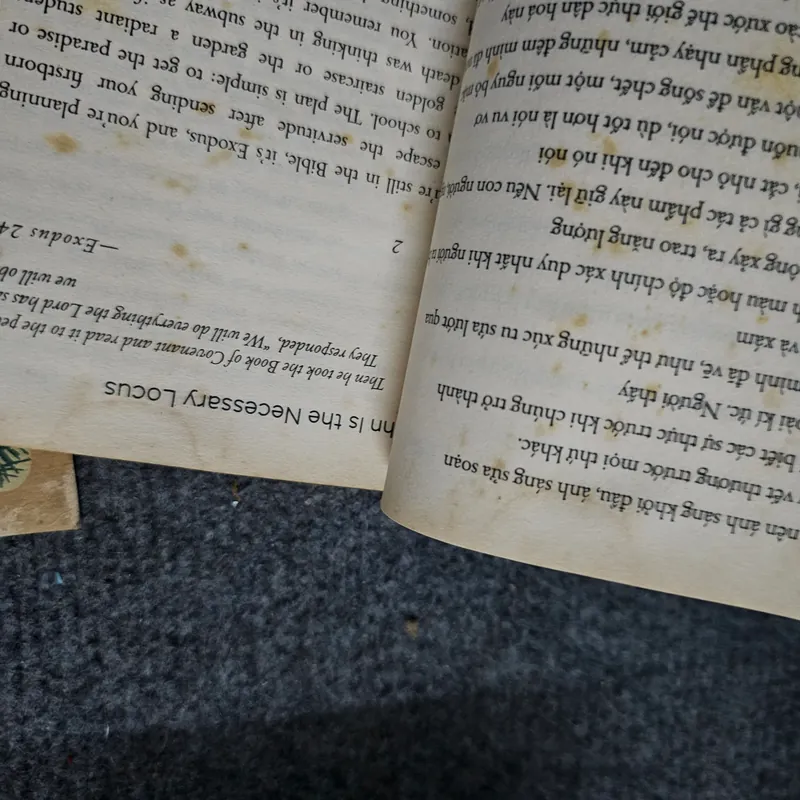 hn Is the Necessary Locus
Then he took the Book of Covenant and read it to the pe
They responded, "We will do everything the Lord has s
we will ob
—Exodus 24
2
're still in the Bible, it's Exodus, and you're planning
escape the servitude after sending your firstborn
to school. The plan is simple: to get the paradise or
golden staircase or the garden a radiant studen
death was thinking in the subway as if
ation. You remember it's
, something
nên ánh sáng khởi đầu, ánh sáng sửa soạn
vết thương trước mọi thứ khác.
biết các sự thực trước khi chúng trở thành
oài kí ức. Người thấy
mình đã vẽ, như thể những xúc tu sứa lướt qua
và xám
h màu hoặc độ chính xác duy nhất khi người
ộng xảy ra, trao năng lượng
ng gì cả tác phẩm này giữ lại. Nếu con người
, cất nhỏ cho đến khi nó nói
uốn được nói, dù tốt hơn là nói vu vơ
ột vấn đề sống chết, một mối nguy bỏ
ng phấn nhạy cảm, những đêm mình
tảo xước thế giới thực dân hoá này